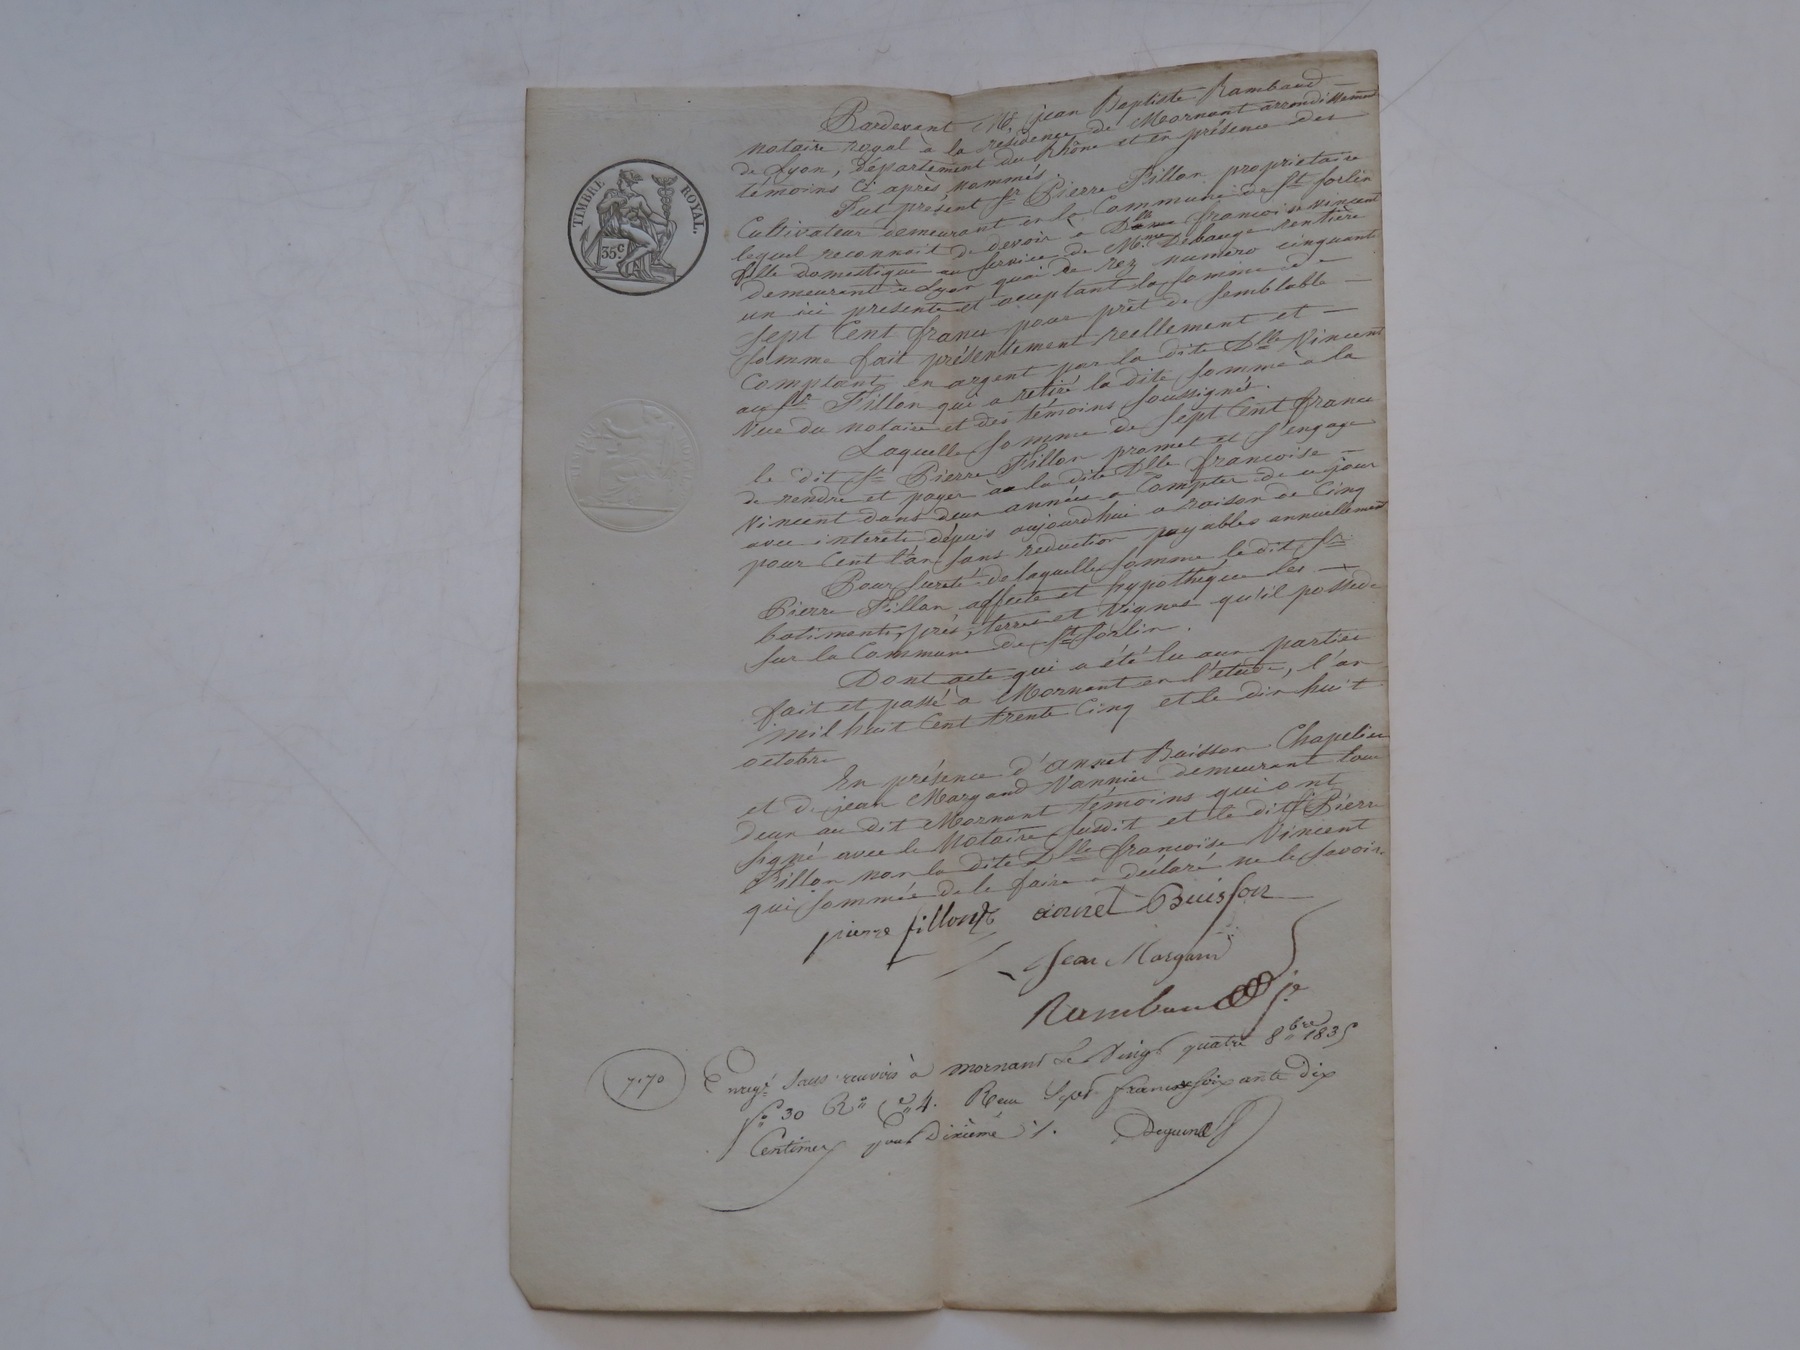 TIMBRE ROYAL.
35.c
Pardevant Me. jean Baptiste Rambaud
notaire royal à la résidence de Mornant arrondissement
de Lyon, Département du Rhône et en présence des
témoins ci après nommés.
Fut présent Sr. Pierre Fillon propriétaire
Cultivateur demeurant en la Commune de St. Sorlin
lequel reconnait devoir a Dlle francoise vincent
fille domestique au service de Mme Debauge rentière
demeurant à Lyon quai de retz numero cinquant
un ici presente et acceptant la somme de
sept Cent francs pour prêt de semblable
somme fait présentement reellement et
Comptant en argent par la dite Dlle Vincent
au Sr Fillon qui a retiré la dite somme à la
Vue du notaire et des témoins soussignés.
Laquelle somme de sept Cent francs
le dit Sr Pierre Fillon promet et s'engage
de rendre et payer a la dite Dlle francoise
Vincent dans deux années a Compter de ce jour
avec interets depuis aujourdhui a raison de Cinq
pour Cent l'an sans reduction payables annuellement
Pour sureté de laquelle somme le dit Sr
Pierre Fillon affecte et hypothèque les
batiments, prés, terres et Vignes qu'il possede
sur la Commune de St Sorlin.
Dont acte qui a été lu aux parties
fait et passé à Mornant en l'étude, l'an
mil huit Cent trente Cinq et le dix huit
octobre
En présence d'annet Buisson Chapelier
et de jean Margand Vannier demeurant tous
deux au dit Mornant témoins qui ont
signé avec le Notaire susdit et le dit Sr Pierre
Fillon non la dite Dlle francoise Vincent
qui sommée de le faire a déclaré ne le savoir.
pierre fillon annet Buisson
Jean Margand
Rambaud
7.70 Enregé sans renvois à mornant Le Vingt quatre 8bre 1835
fo 30 Ro Ce 4. Reçu Sept francs soixante dix
Centimes pour Dixième